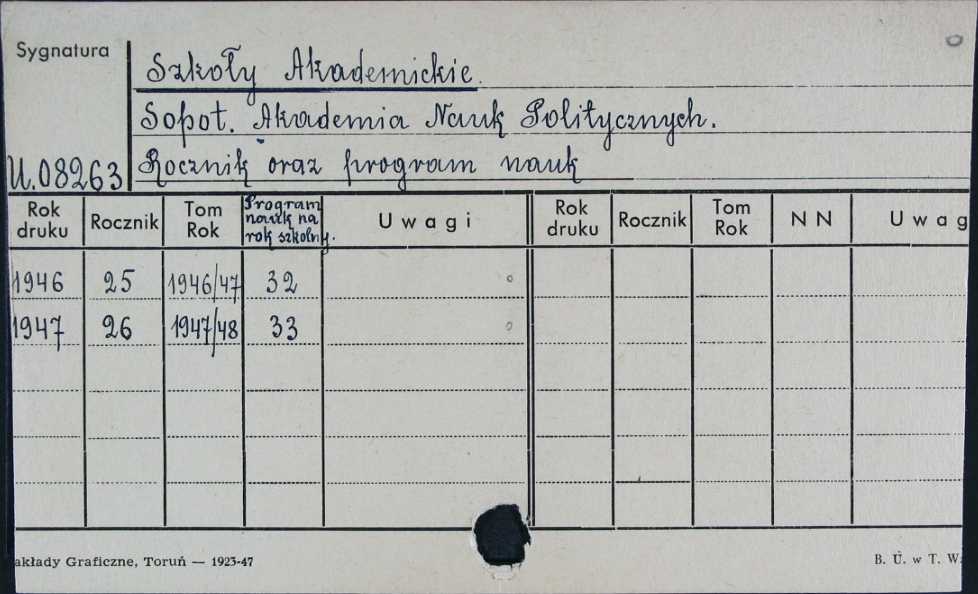 Sygnatura
Szkoły Akademickie.
Sopot. Akademia Nauk Politycznych.
U.08263 Rocznik oraz program nauk
Rok druku Rocznik Tom Rok Program nauk na rok szkolny. Uwagi Rok druku Rocznik Tom Rok NN Uwag
1946 25 1946/47 32
1947 26 1947/48 33
akłady Graficzne, Toruń — 1923-47 B. U. w T. W.